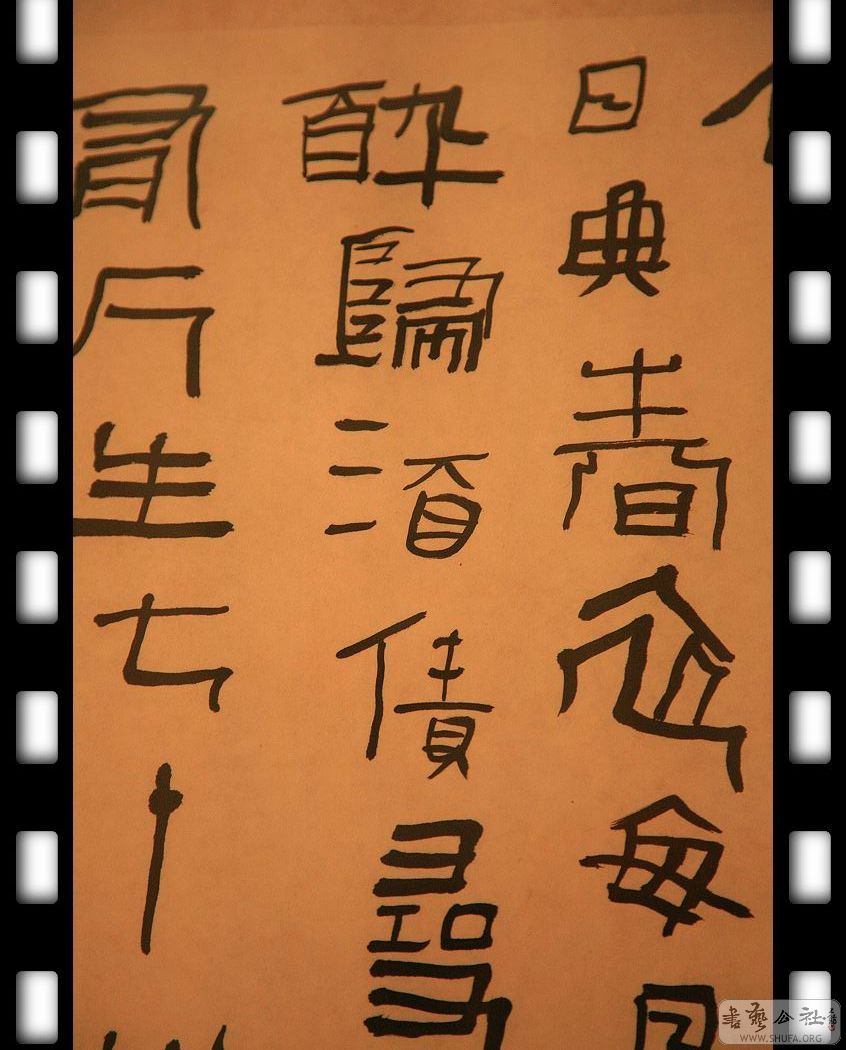 日典春衣每日
醉歸酒債尋
有人生七十
書藝公社
WWW.SHUFA.ORG